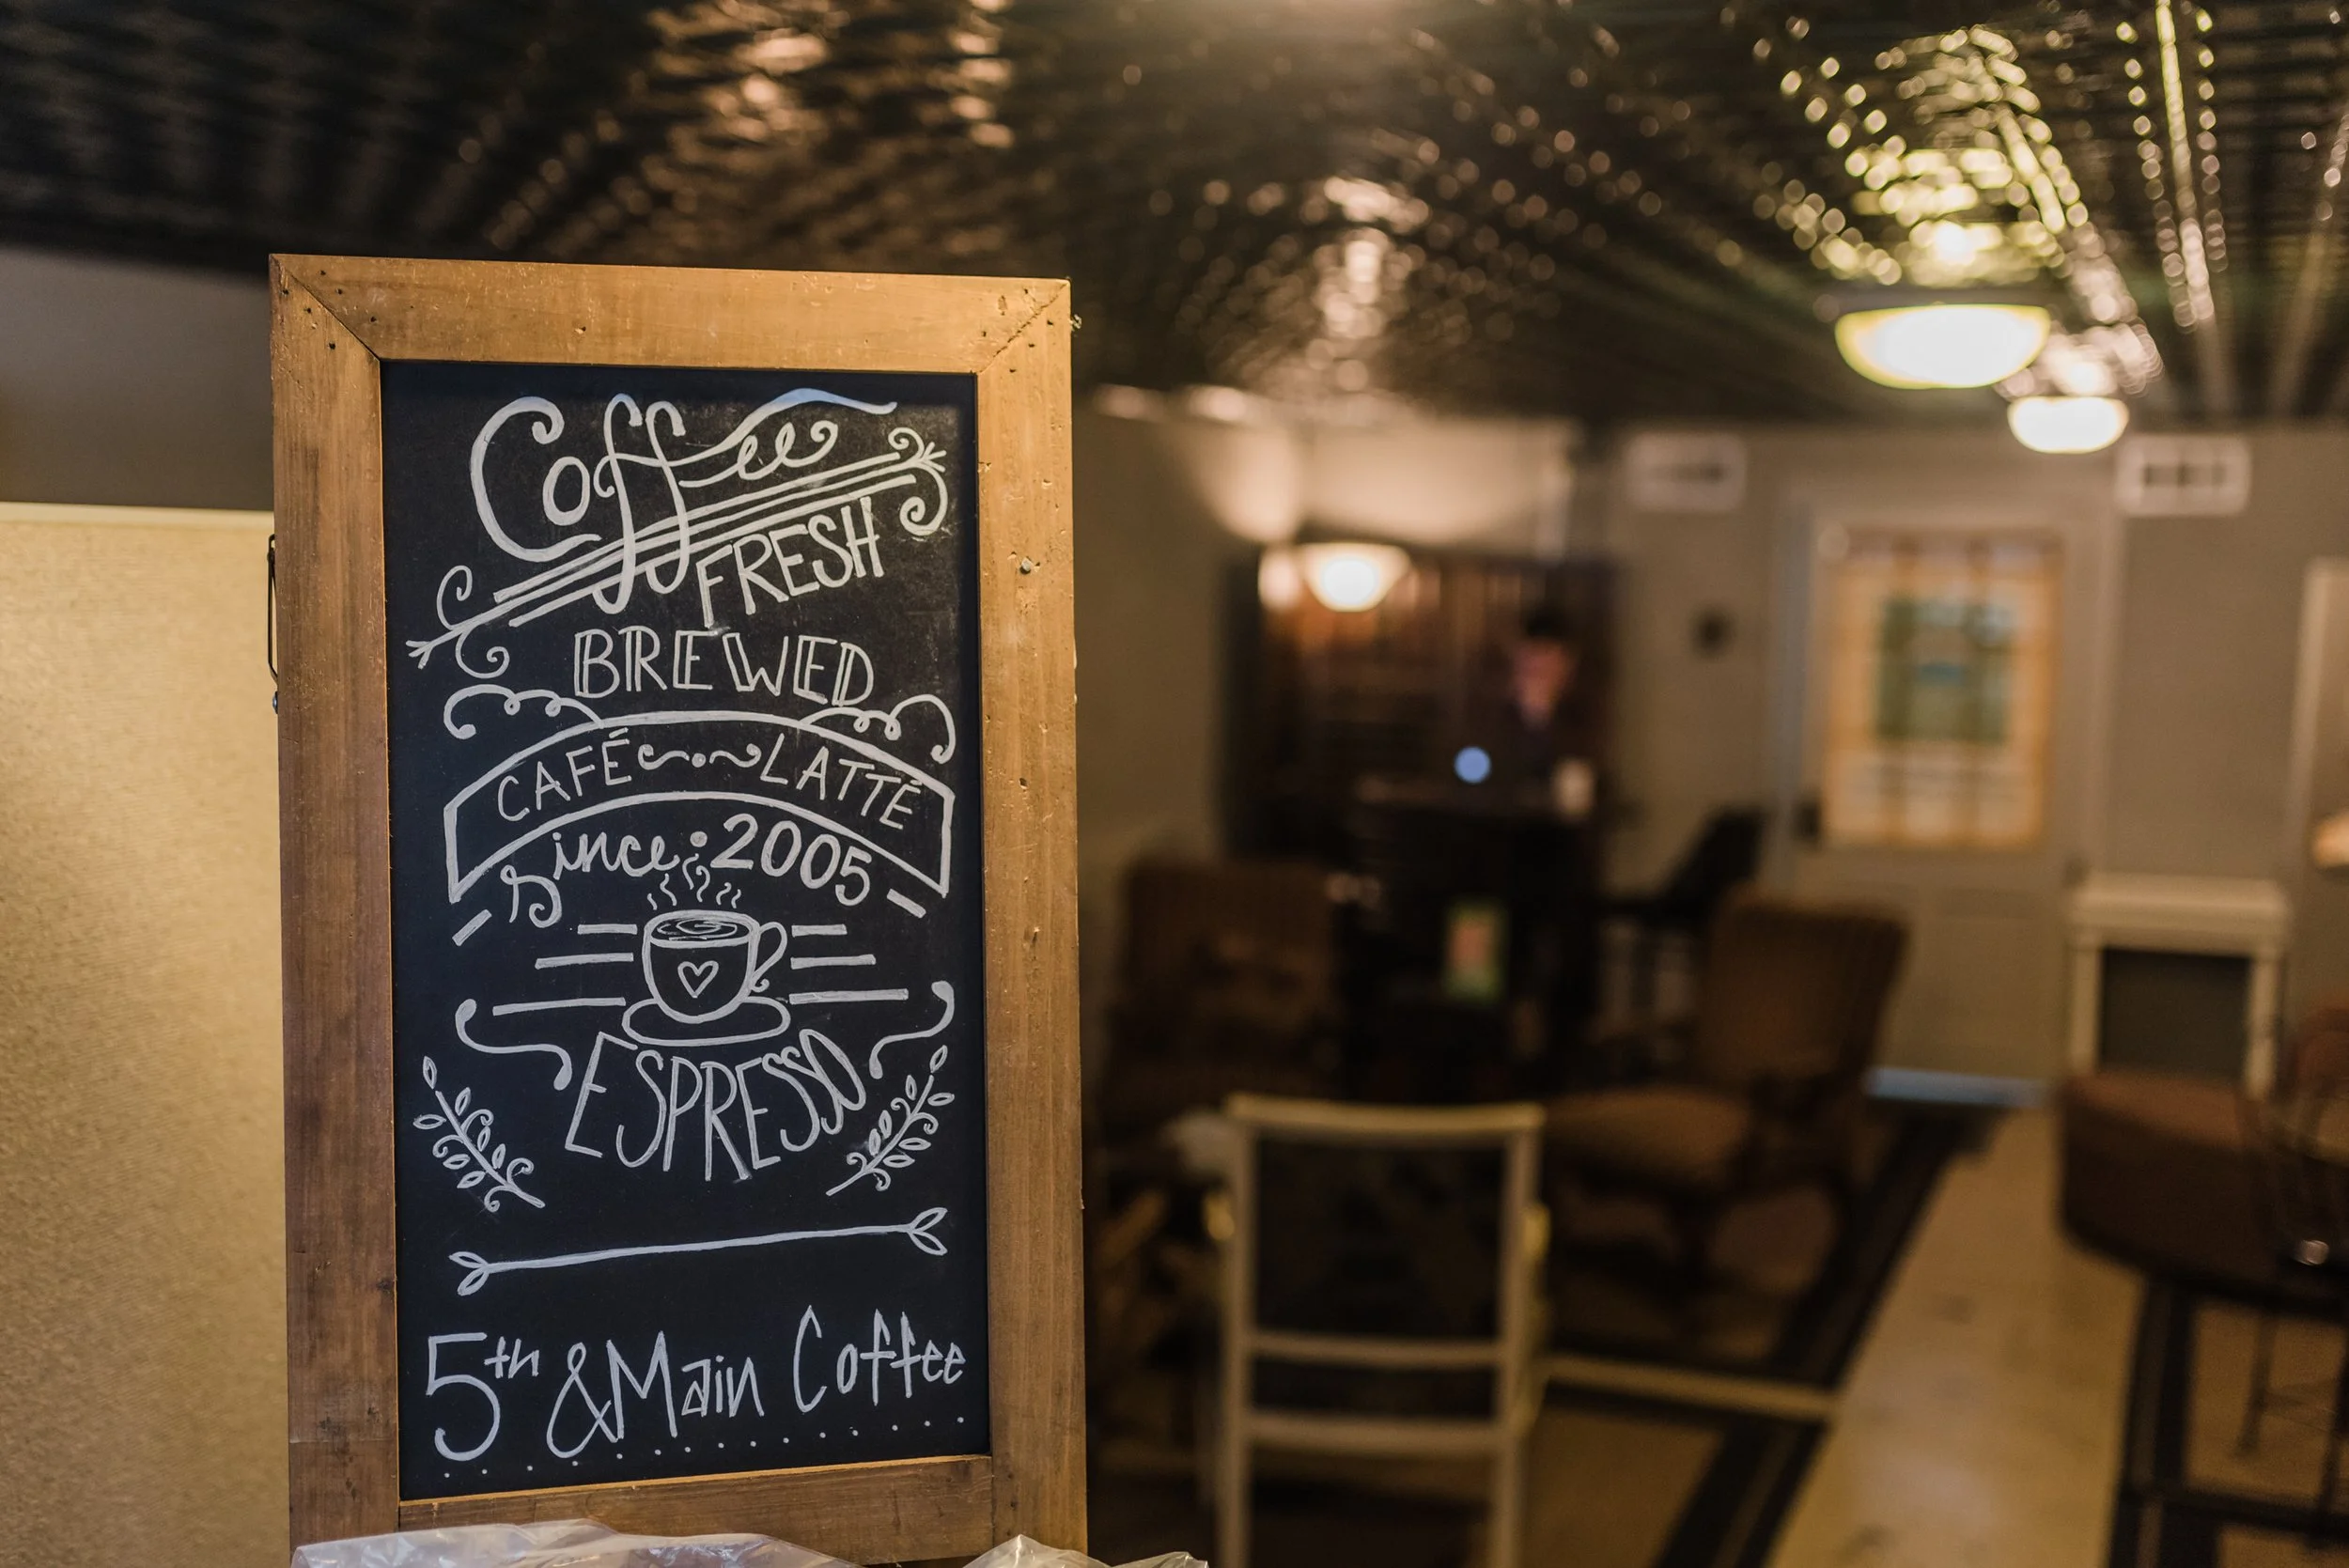 Coffee
FRESH
BREWED
CAFÉ LATTÉ
Since 2005
ESPRESSO
5th & Main Coffee